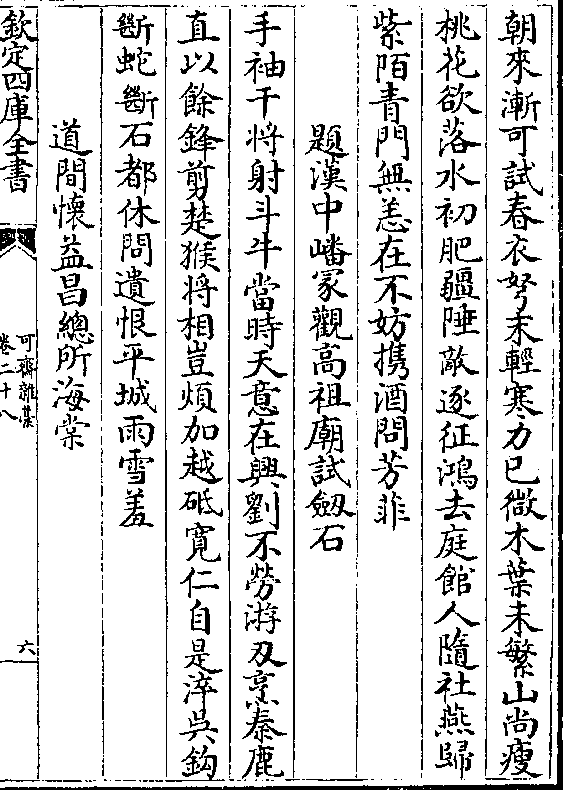 朝來漸可試春衣弩末輕寒力已微木葉未繁山尚瘦
桃花欲落水初肥疆陲敵逐征鴻去庭館人隨社燕歸
紫陌青門無恙在不妨携酒問芳菲
題漢中嶓冢觀高祖廟試劔石
手袖干將射斗牛當時天意在興劉不勞游刃烹秦鹿
直以餘鋒剪楚猴將相豈煩加越砥寛仁自是淬吳鈎
斷蛇斷石都休問遺恨平城雨雪羞
道間懷益昌總所海棠
欽定四庫全書
可齋雜藁
卷二十八
六